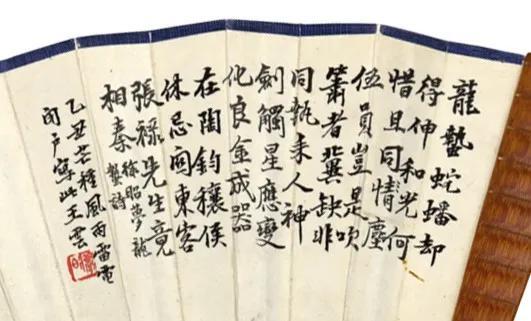 龍蟄蛇蟠却
得伸和光何
惜且同情塵
伍員豈是吹
簫者冀缺非
同執耒人神
劍觸星應變
化良金成器
在陶鈞穰侯
休忌関東客
張祿先生竟
相秦
徐昭夢龍
蟄詩
乙丑芒種風雨雷電
閉戶寫此王雲